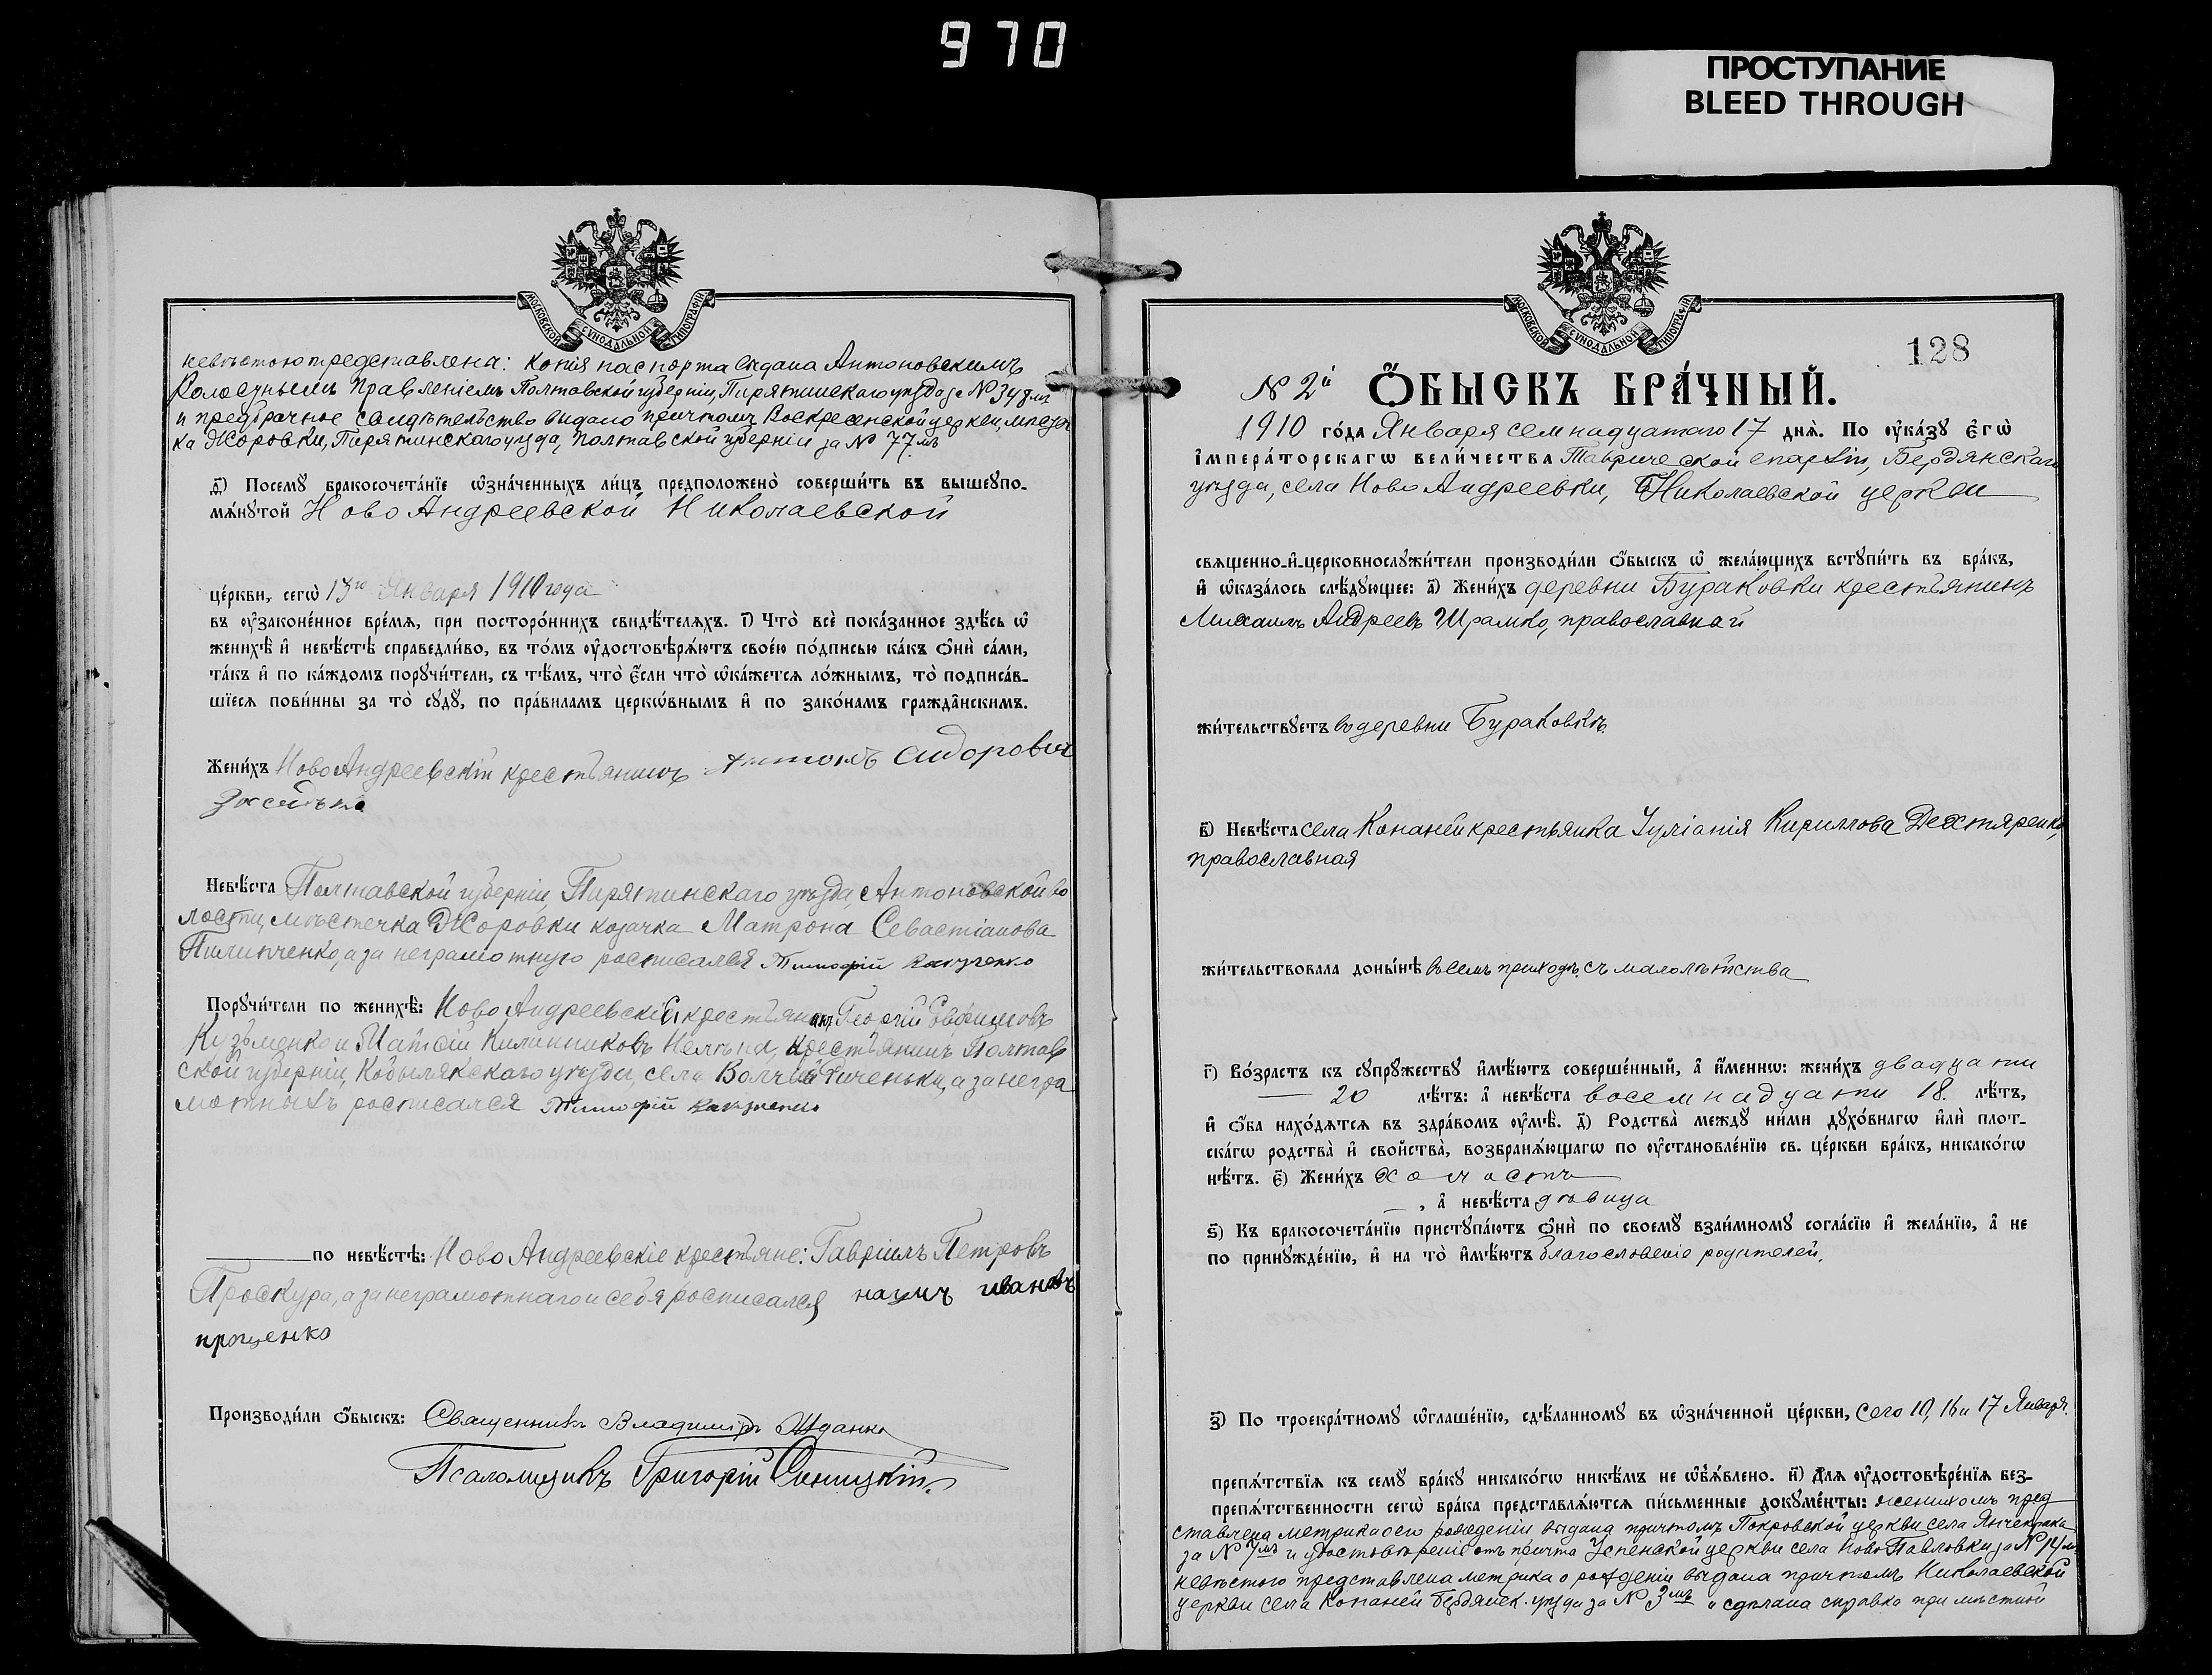 970
ПРОСТУПАНИЕ
BLEED THROUGH
МОСКОВСКОЙ СѴНОДАЛЬНОЙ ТИПОГРАФІИ
невѣстою представлена: копія паспорта выдана Антоновскимъ
Волостнымъ Правленіемъ Полтавской губерніи, Пирятинскаго уѣзда за № 348мъ
и предбрачное свидѣтельство выдано причтомъ Воскресенской церкви, мѣстеч
ка Жоровки, Пирятинскаго уѣзда, Полтавской губерніи за № 77.мъ
д҃) Посемꙋ бракосочета́нїе ѡ҆зна́ченныхъ ли́цъ предположено̀ соверши́ть въ вышеꙋпо-
мѧ́нꙋтой Ново Андреевской Николаевской
це́ркви, сегѡ̀ Января 1910 года
въ ᲂу҆законе́нное вре́мѧ, при посторо́ннихъ свидѣ́телѧхъ. і҃) Что̀ всѐ пока́занное здѣ́сь ѡ҆
женихѣ̀ и҆ невѣ́стѣ справедли́во, въ то́мъ ᲂу҆достовѣрѧ́ютъ свое́ю по́дписью ка́къ ѻ҆нѝ са́ми,
та́къ и҆ по ка́ждомъ порꙋчи́тели, съ тѣ́мъ, что̀ є҆́сли что̀ ѡ҆ка́жетсѧ ло́жнымъ, то̀ подписа́в-
шїесѧ пови́нны за то̀ сꙋдꙋ̀, по пра́виламъ церкѡ́внымъ и҆ по зако́намъ гражда̂нскимъ.
Жени́хъ Ново Андреевскій крестьянинъ Антонъ Сидоровъ
Невѣ́ста Полтавской губерніи, Пирятинскаго уѣзда, Антоновской во
лости, мѣстечка Жоровки козачка Матрона Севастіанова
Пилипченко, а за неграмотную росписался Тимофій
Порꙋчи́тели по женихѣ̀: Ново Андреевскій крестьянинъ Георгій Евфимовъ
Кузьменко и Матѳій крестьянинъ Полтав
ской губерніи, Кобылякскаго уѣзда, села а за негра
мотныхъ росписался Тимофій
по невѣ́стѣ: Ново Андреевскіе крестьяне: Гавріилъ Петровъ
Проскура, а за неграмотнаго и себя росписался наумъ ивановъ
проценко
Производи́ли ѻ҆́быскъ: Священникъ Владиміръ Жданко
Псаломщикъ Григорій Синицкій.
МОСКОВСКОЙ СѴНОДАЛЬНОЙ ТИПОГРАФІИ
128
№ 2й ѺБЫСКЪ БРА́ЧНЫЙ.
1910 го́да Января семнадцатаго 17 днѧ̀. По ᲂу҆ка́зꙋ є҆гѡ̀
і҆мпера́торскагѡ вели́чества Таврической епархіи, Бердянскаго
уѣзда, села Ново Андреевки, Николаевской церкви
свѧщенно-и҆-церковнослꙋжи́тели производи́ли ѻ҆́быскъ ѡ҆ жела́ющихъ встꙋпи́ть въ бра́къ,
и҆ ѡ҆каза́лось слѣ́дꙋющее: а҃) Жени́хъ деревни Бураковки крестьянинъ
Михаилъ Андреевъ Шрамко, православный
жи́тельствꙋетъ въ деревни Бураковкѣ.
в҃) Невѣ́ста села Копаней крестьянка Іуліанія Кириллова Дехтяренко,
православная
жи́тельствовала доны́нѣ въ семъ приходѣ съ малолѣтства
г҃) Во́зрастъ къ сꙋпрꙋ́жествꙋ и҆мѣ́ютъ соверше́нный, а҆ и҆́меннѡ: жени́хъ двадцати
20 лѣ́тъ: а҆ невѣ́ста восемнадцати 18. лѣ́тъ,
и҆ ѻ҆́ба нахо́дѧтсѧ въ здра́вомъ ᲂу҆мѣ̀. д҃) Родства̀ междꙋ̀ ни́ми дꙋхо́внагѡ и҆лѝ плот-
ска́гѡ родства̀ и҆ сво́йства̀, возбранѧ́ющагѡ по ᲂу҆становле́нїю св. це́ркви бра́къ, никако́гѡ
нѣ́тъ. є҃) Жени́хъ холостъ
, а҆ невѣ́ста дѣвица
ѕ҃) Къ бракосочета́нїю пристꙋпа́ютъ ѻ҆нѝ по своемꙋ̀ взаи́мномꙋ согла́сїю и҆ жела́нїю, а҆ не
по принꙋжде́нїю, и҆ на то̀ и҆мѣ́ютъ благословеніе родителей.
з҃) По троекра́тномꙋ ѡ҆глаше́нїю, сдѣ́ланномꙋ въ ѡ҆зна́ченной це́ркви, сего 10, 16 и 17 Января.
препѧ́тствїѧ къ семꙋ̀ бра́кꙋ никако́гѡ никѣ́мъ не ѡ҆б̾ѧ́влено. и҃) Длѧ ᲂу҆достовѣре́нїѧ без-
препѧ́тственности сегѡ̀ бра́ка представлѧ́ютсѧ пи́сьменные докꙋме́нты: женихомъ пред
ставлена метрика о его рожденіи выдана причтомъ Покровской церкви села Янчекрака
за № 7мъ и удостовѣреніе отъ причта Успенской церкви села Ново Павловки за № 14мъ
невѣстою представлена метрика о рожденіи выдана причтомъ Николаевской
церкви села Копаней Бердянск. уѣзда за № 3мъ и сдѣлана справка при мѣстной